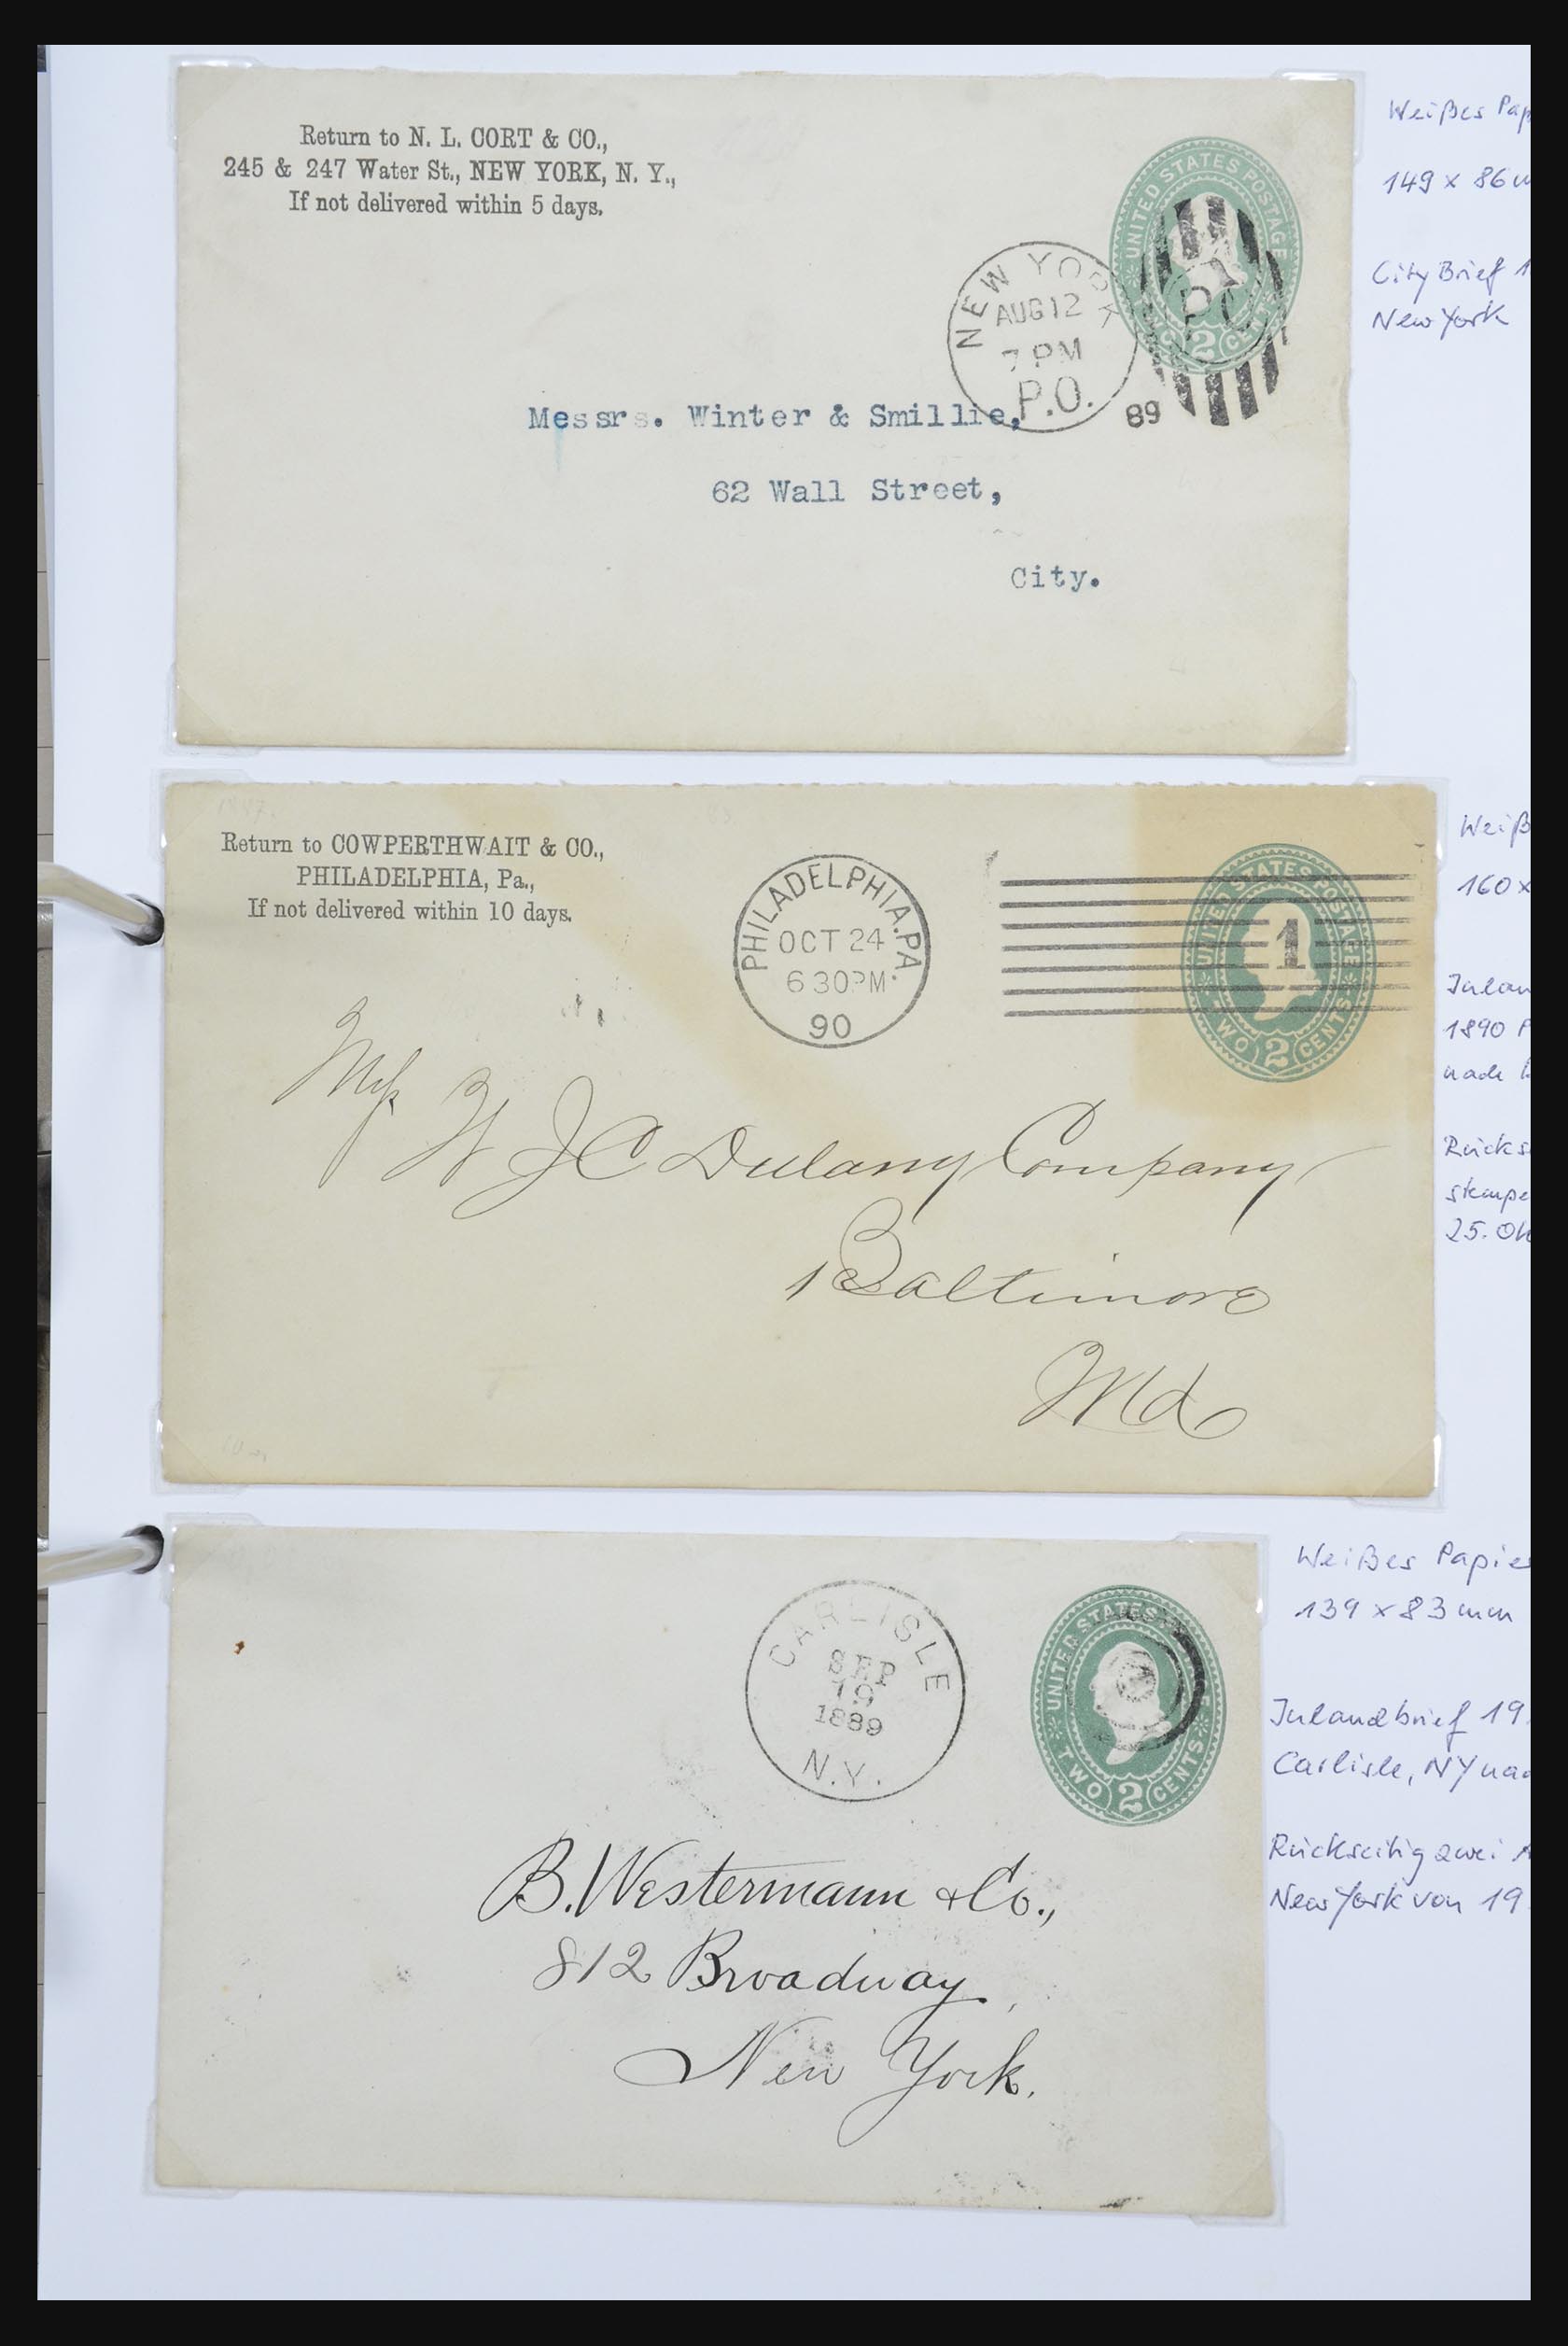 Return to N. L. CORT & CO.,
245 & 247 Water St., NEW YORK, N. Y.,
If not delivered within 5 days.
UNITED STATES POSTAGE
TWO 2 CENTS
NEW YORK
AUG 12
7 PM
P.O.
89
Messrs. Winter & Smillie,
62 Wall Street,
City.
Weißes
149 x 86
City Brief
New York
Return to COWPERTHWAIT & CO.,
PHILADELPHIA, Pa.,
If not delivered within 10 days.
PHILADELPHIA. PA
OCT 24
6 30PM.
90
1
UNITED STATES POSTAGE
TWO 2 CENTS
W J C Dulany Company
Baltimore
Md
160 x
1890
25.
CARLISLE
SEP
19
1889
N.Y.
UNITED STATES
TWO 2 CENTS
B. Westermann & Co.,
812 Broadway,
New York.
Weißes Papie
139 x 83 mm
Inlandbrief 19.
Carlisle, NY
Rückseitig zwei
New York von 19